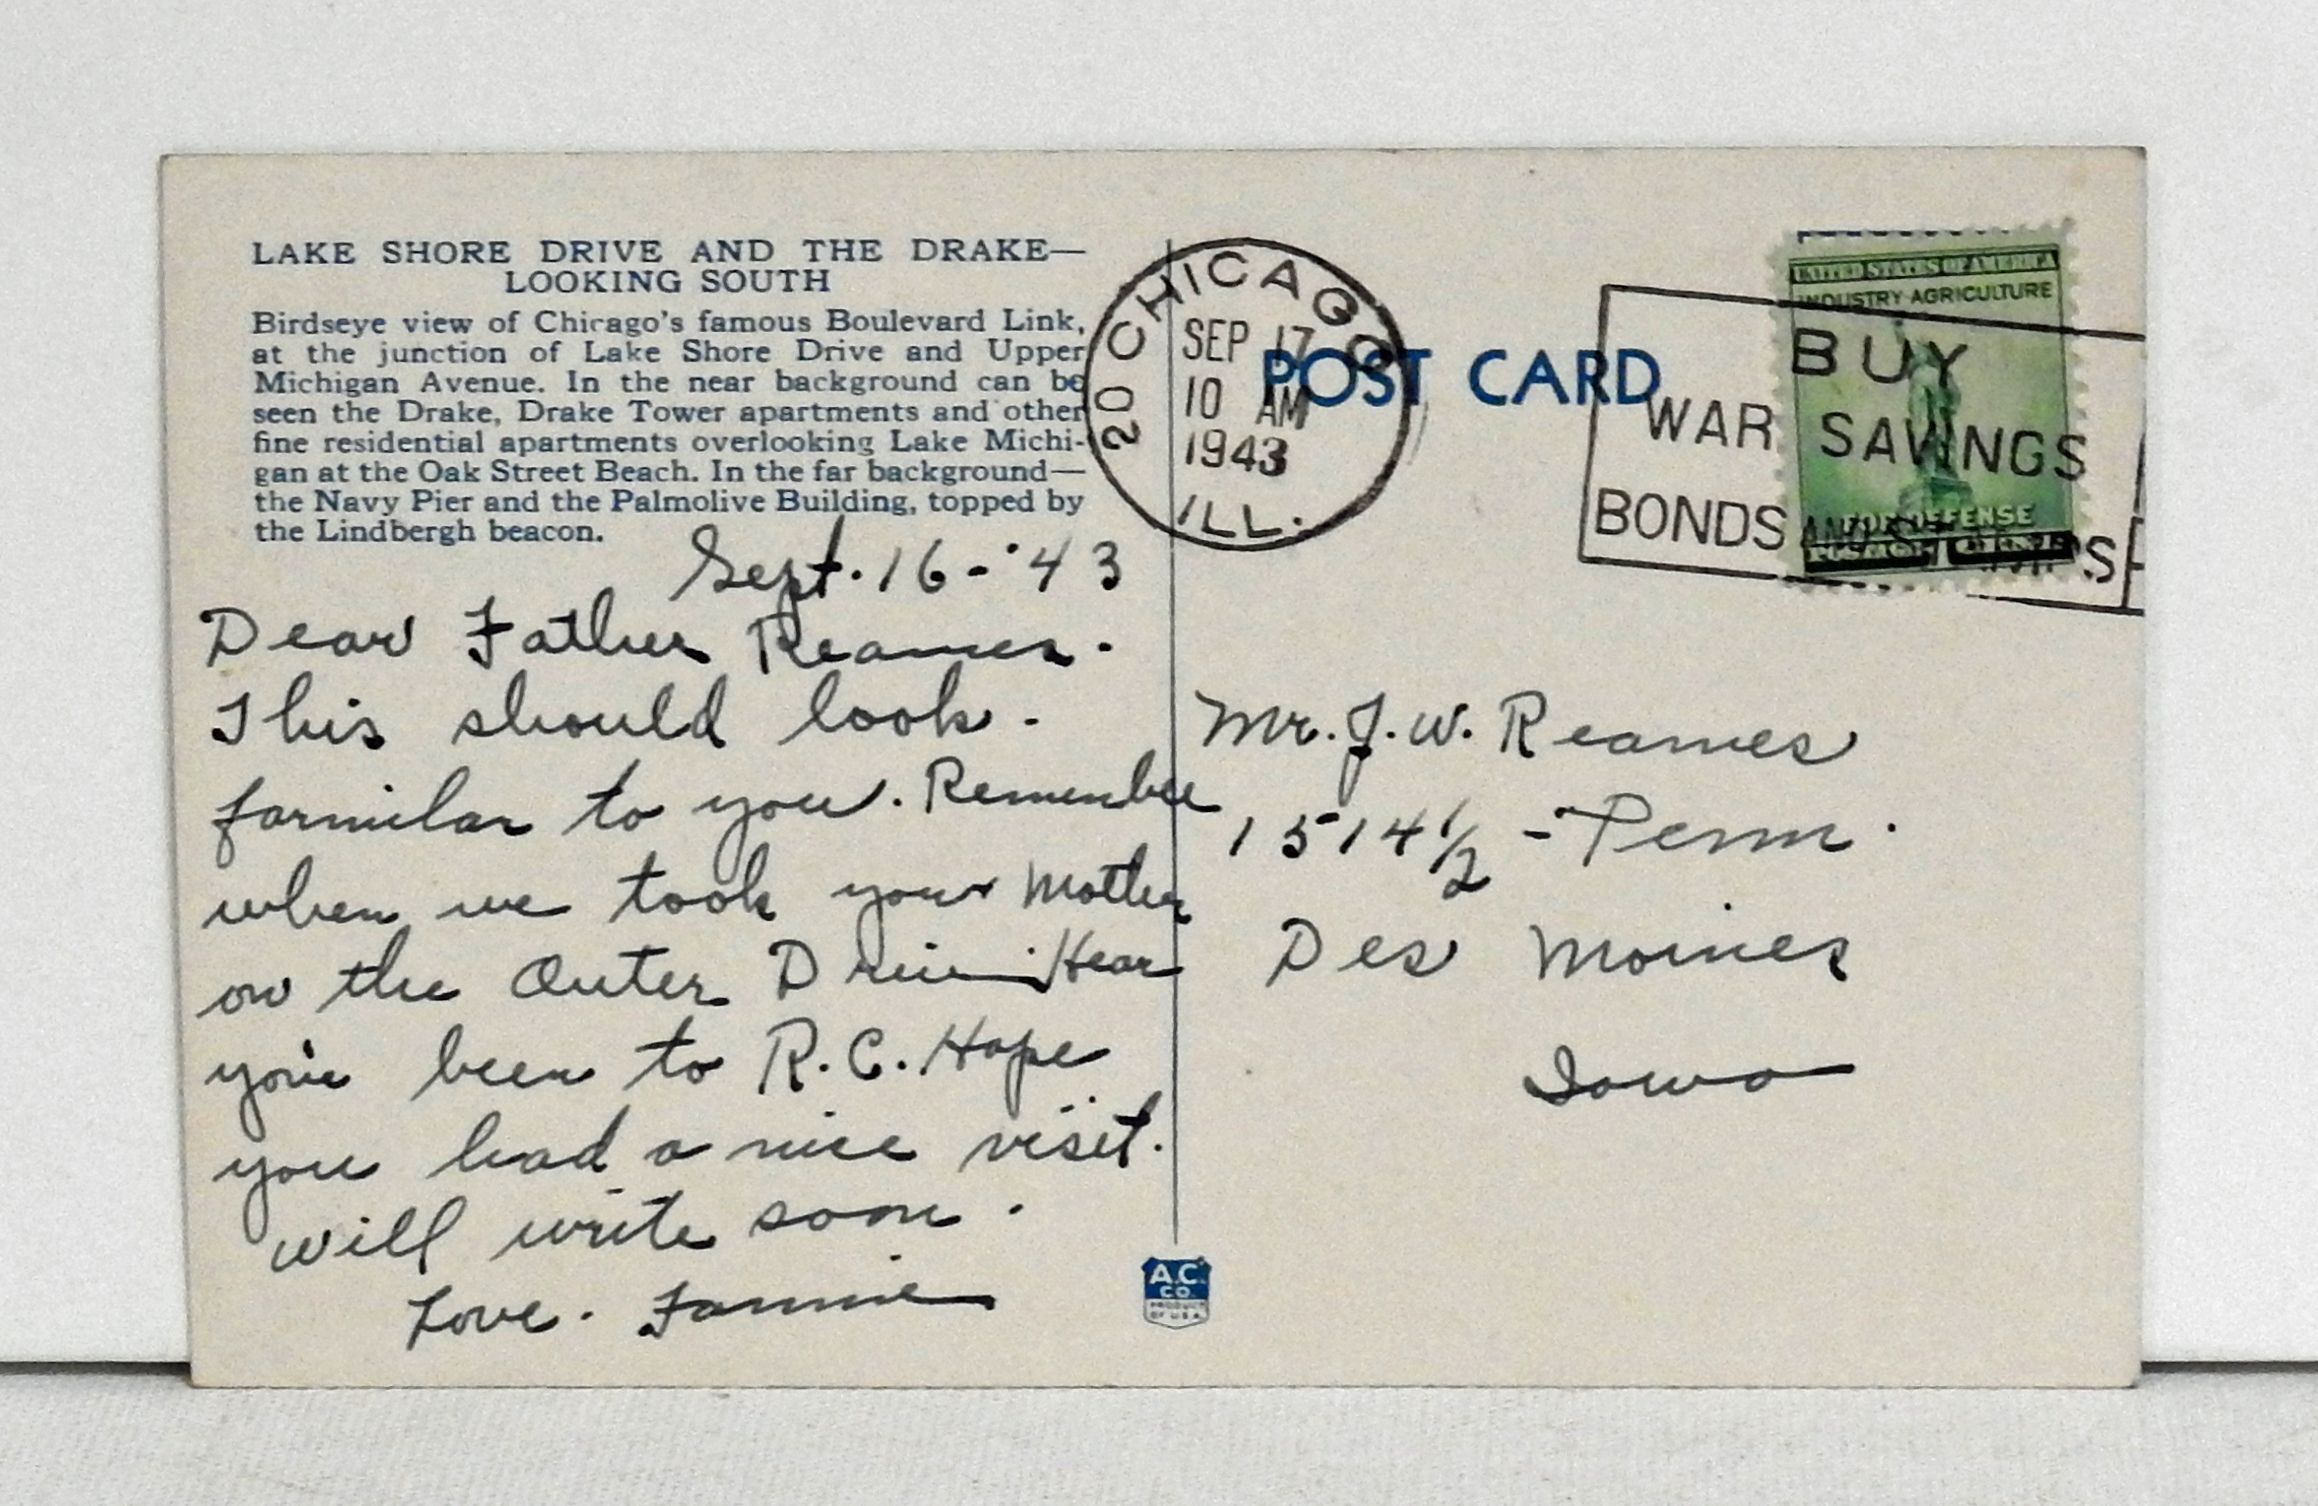 LAKE SHORE DRIVE AND THE DRAKE—
LOOKING SOUTH
Birdseye view of Chicago's famous Boulevard Link,
at the junction of Lake Shore Drive and Upper
Michigan Avenue. In the near background can be
seen the Drake, Drake Tower apartments and other
fine residential apartments overlooking Lake Michi-
gan at the Oak Street Beach. In the far background—
the Navy Pier and the Palmolive Building, topped by
the Lindbergh beacon.
Sept. 16 - '43
Dear Father Reames.
This should look.
farmilar to you. Remember
when we took your Mother
on the Outer Drive. Hear
you've been to R.C. Hope
you had a nice visit.
Will write soon.
Love. Fannie
POST CARD
20 CHICAGO
SEP 17
10 AM
1943
ILL.
BUY
WAR SAVINGS
BONDS AND STAMPS
UNITED STATES OF AMERICA
INDUSTRY AGRICULTURE
FOR DEFENSE
Mr. J. W. Reames
1514½ - Penn.
Des Moines
Iowa
A.C.
CO.
PRODUCT
OF U.S.A.